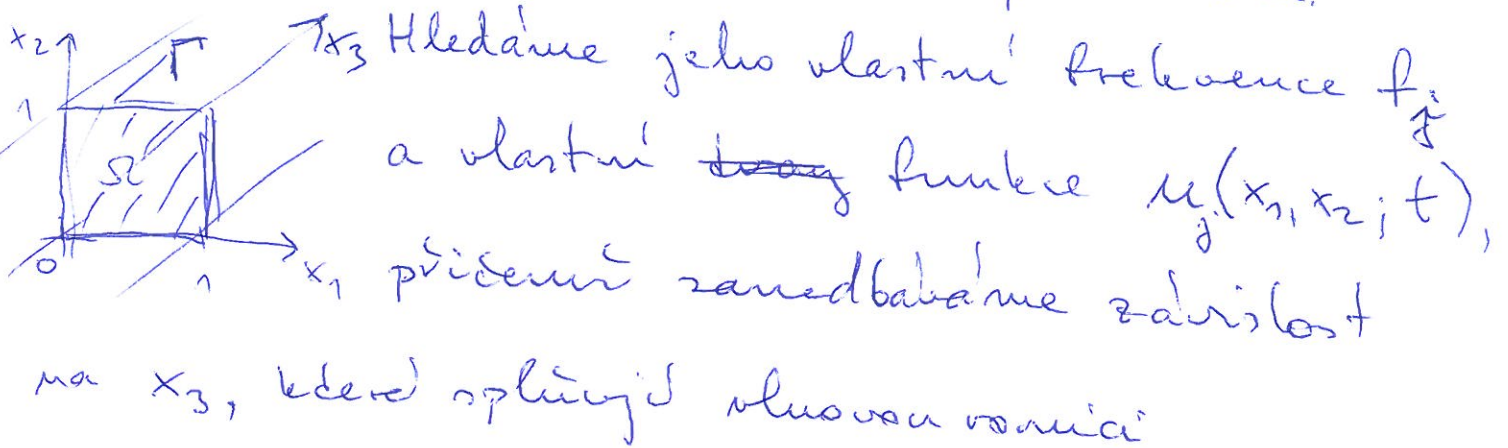 x₂ Γ x₃ Hledáme jeho vlastní frekvence f_j
1 Ω a vlastní funkce u_j(x₁, x₂; t),
0 1 x₁ přičemž zanedbáváme závislost
na x₃, které splňují vlnovou rovnici